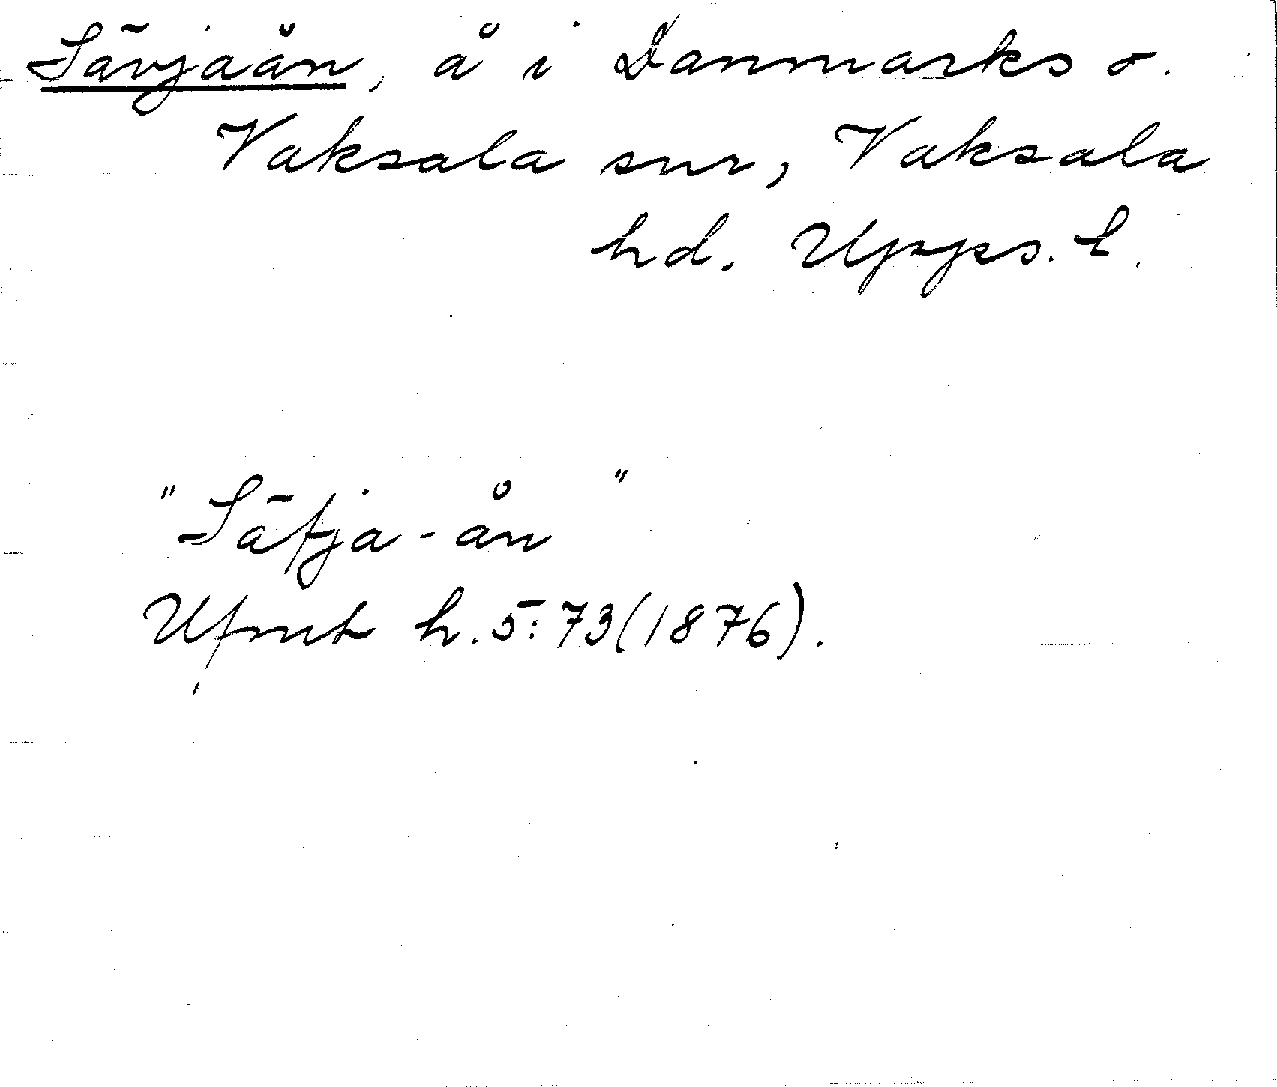 Sävjaån, å i Danmarks o.
Vaksala snr, Vaksala
hd. Upps. l.
"Säfja-ån"
Ufmt h.5:73(1876).